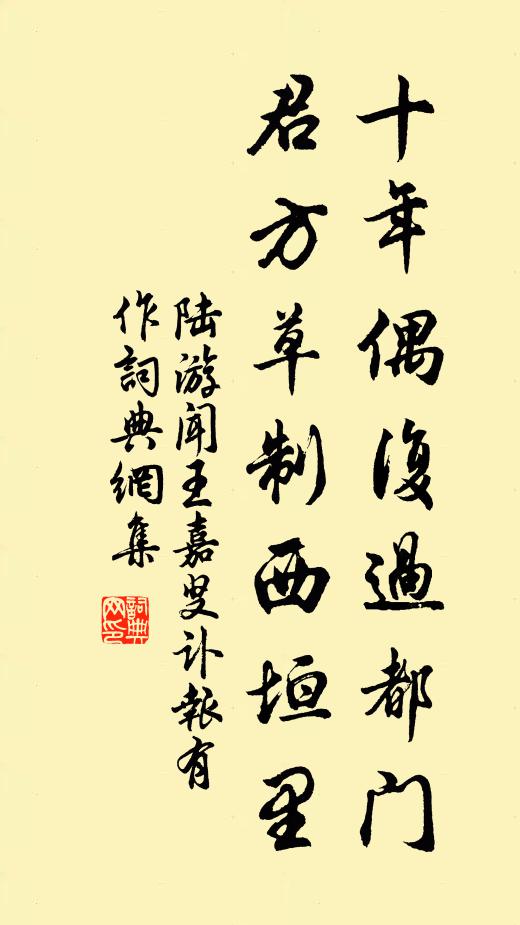 十年偶復過都門
君方草制西垣里
陸游聞王嘉叟訃報有
作詞典網集
詞典
网印